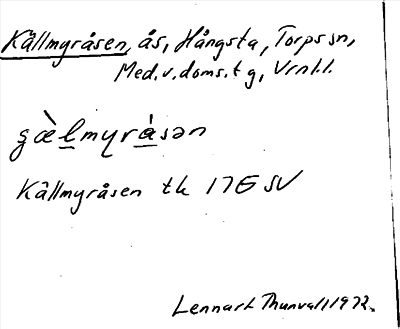 Källmyråsen, ås, Hångsta, Torps sn,
Med. v. doms. t g, Vrnl. l.
Källmyråsen tk 17G SV
Lennart Thunvall 1972.